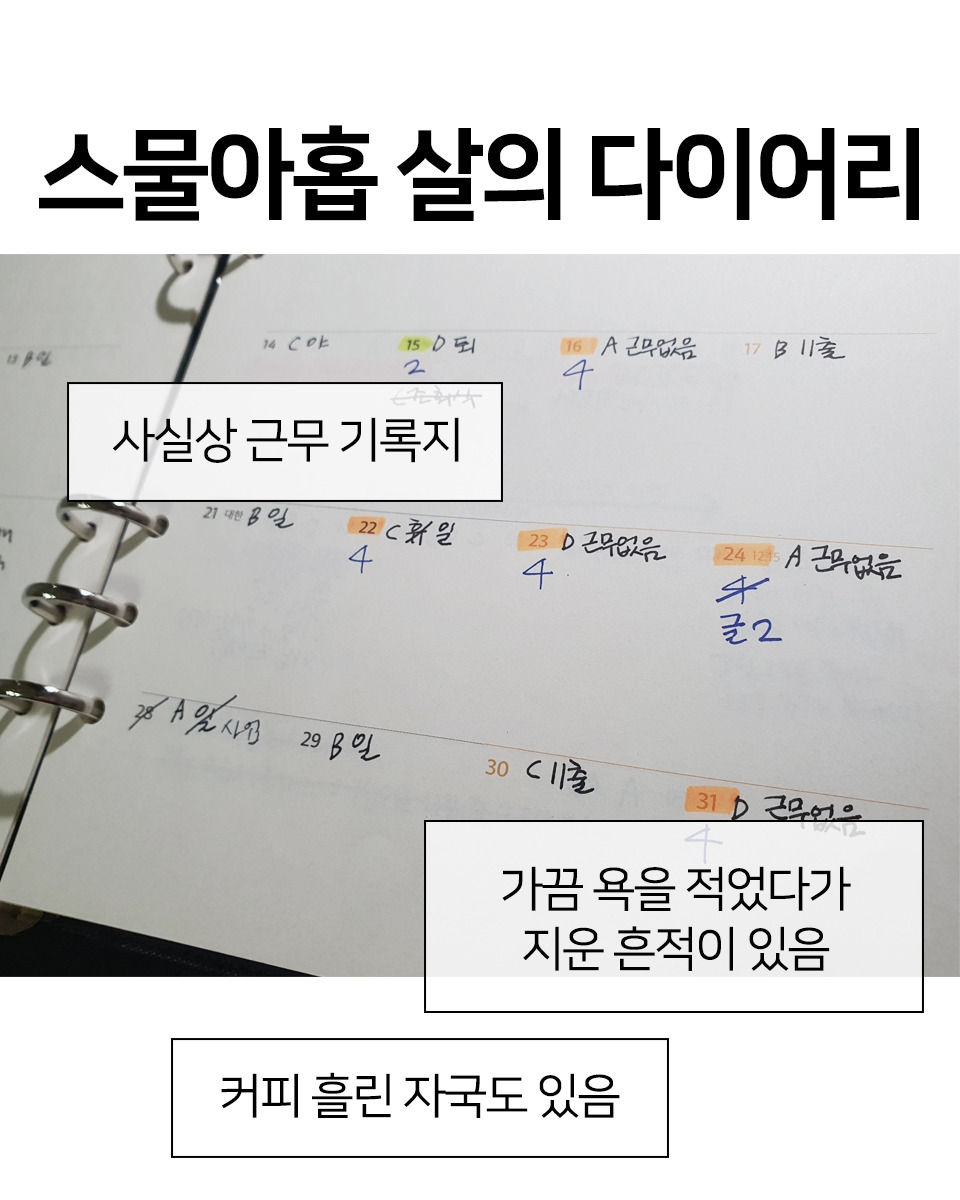 스물아홉 살의 다이어리
13 B 일
14 C 야
15 D 퇴
16 A 근무없음
17 B 11출
2
4
사실상 근무 기록지
21 대한 B 일
22 C 휴 일
23 D 근무없음
24 12.15 A 근무없음
4
4
4
글 2
28 A 일 사업
29 B 일
30 C 11출
31 D 근무없음
4
가끔 욕을 적었다가
지운 흔적이 있음
커피 흘린 자국도 있음